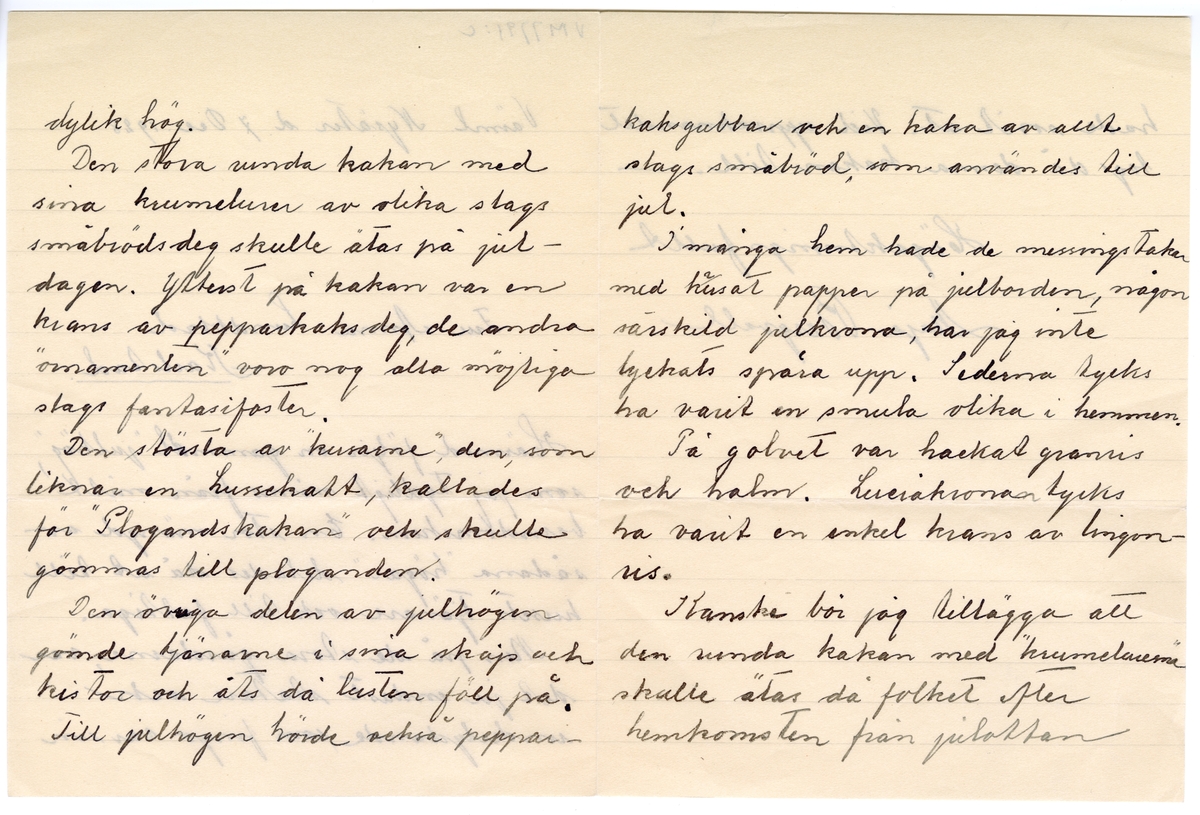 dylik hög.
Den stora runda kakan med
sina krumelurer av olika slags
småbrödsdeg skulle ätas på jul-
dagen. Ytterst på kakan var en
krans av pepparkaksdeg, de andra
"ornamenten" voro nog alla möjliga
slags fantasifoster.
Den största av "kusarne", den, som
liknar en Lussekatt, kallades
för "Plogandskakan" och skulle
gömmas till ploganden.
Den övriga delen av julhögen
gömde tjänarne i sina skåp och
kistor och åts då lusten föll på.
Till julhögen hörde också peppar-
kaksgubbar och en kaka av allt
slags småbröd, som användes till
jul.
I många hem hade de messingstakar
med krusat papper på julborden, någon
särskild julkrona, har jag inte
lyckats spåra upp. Sederna tycks
ha varit en smula olika i hemmen.
På golvet var hackat granris
och halm. Luciakronan tycks
ha varit en enkel krans av lingon-
ris.
Kanske bör jag tillägga att
den runda kakan med "krumelurerna"
skulle ätas då folket efter
hemkomsten från julottan